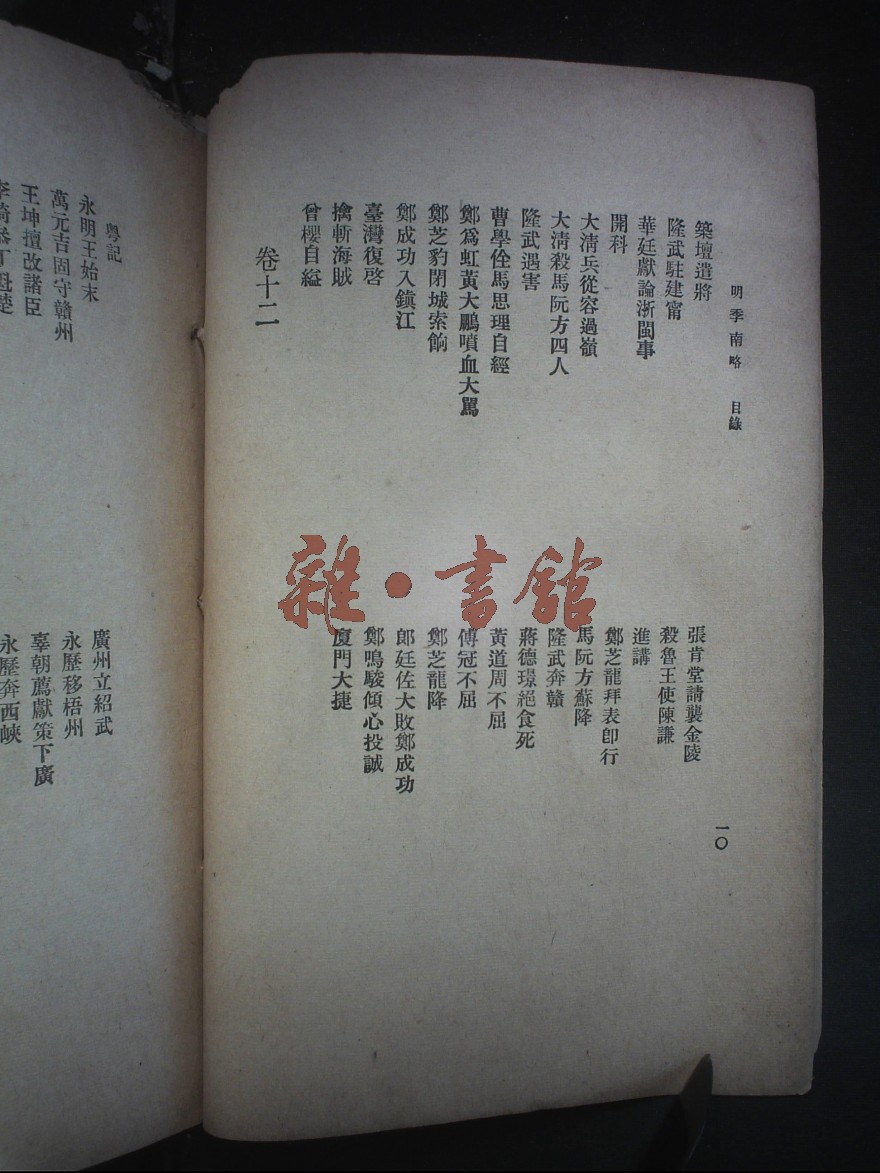 明季南略 目錄
築壇遣將
張肯堂請襲金陵
隆武駐建甯
殺魯王使陳謙
華廷獻論浙閩事
進講
開科
鄭芝龍拜表卽行
大淸兵從容過嶺
馬阮方蘇降
大淸殺馬阮方四人
隆武奔贛
隆武遇害
蔣德璟絕食死
曹學佺馬思理自經
黃道周不屈
鄭爲虹黃大鵬噴血大駡
傅冠不屈
鄭芝豹閉城索餉
鄭芝龍降
鄭成功入鎭江
郎廷佐大敗鄭成功
臺灣復啓
鄭鳴駿傾心投誠
擒斬海賊
廈門大捷
曾櫻自縊
卷十二
一〇
粵記
永明王始末
廣州立紹武
萬元吉固守贛州
永歷移梧州
王坤擅改諸臣
辜朝薦獻策下廣
永歷奔西峽
雜·書館